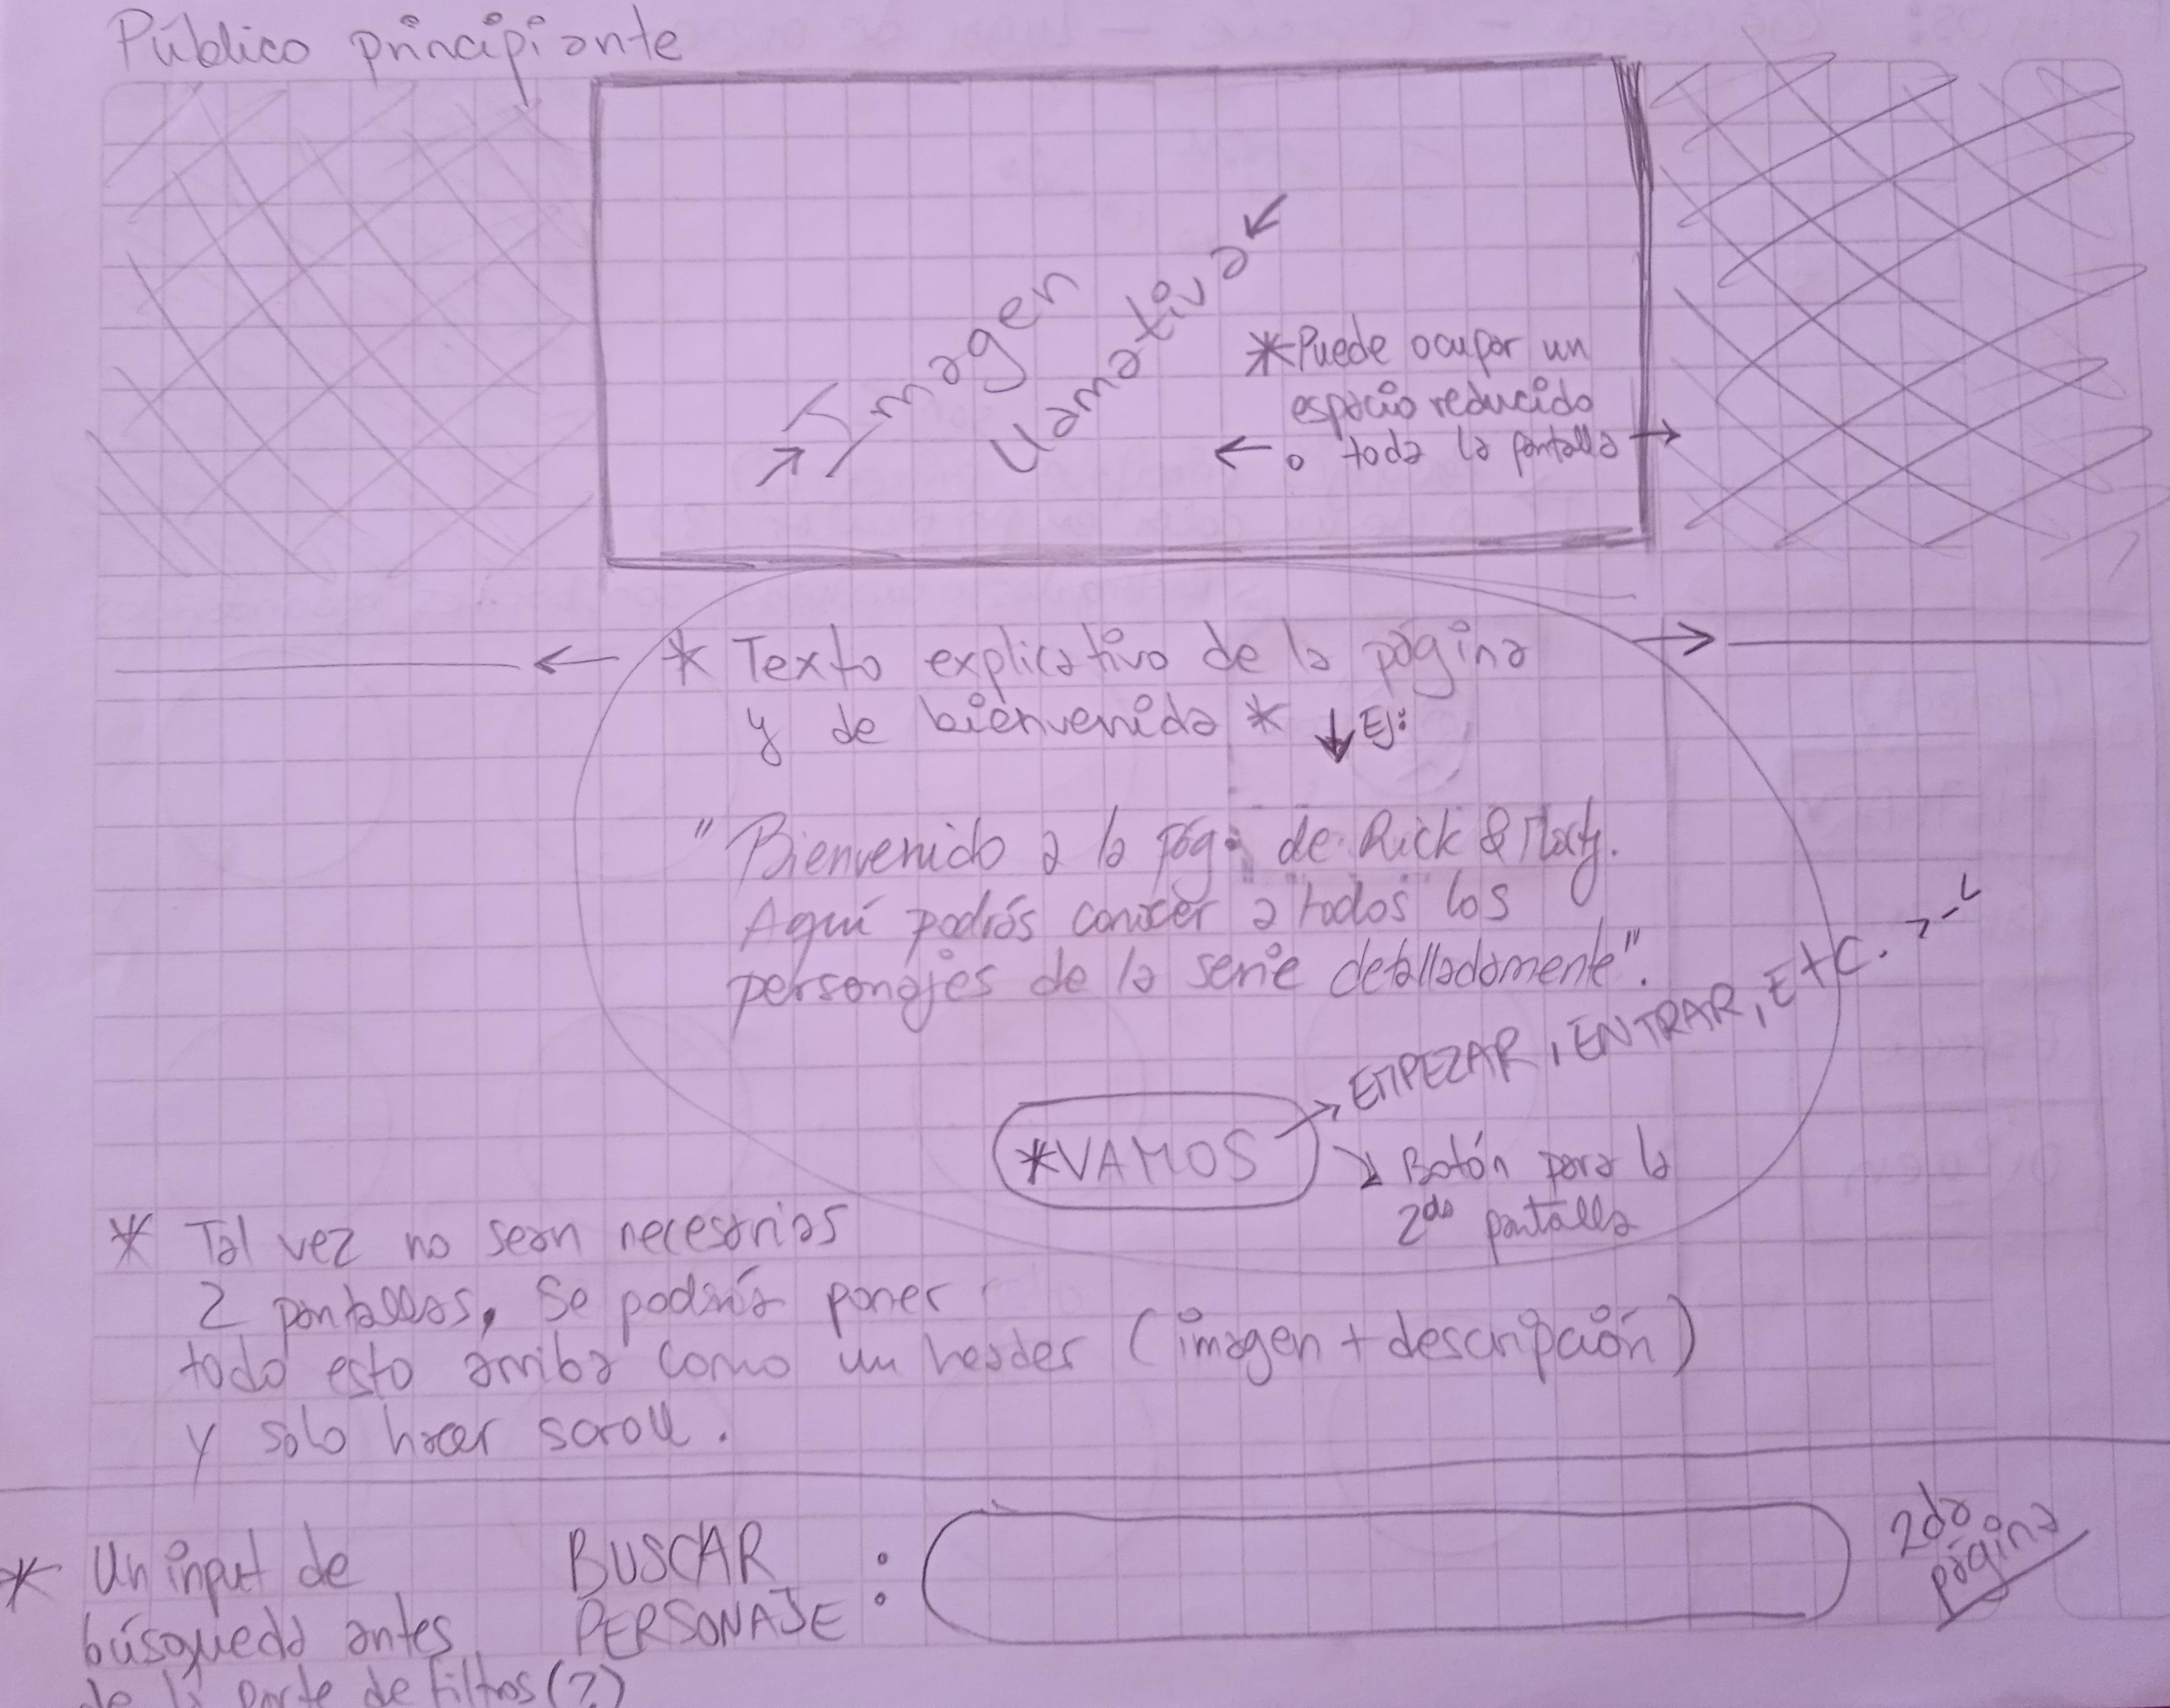 Público principiante
Imagen
llamativa
*Puede ocupar un
espacio reducido
o toda la pantalla
* Texto explicativo de la página
y de bienvenida * ↓ Ej:
"Bienvenido a la pág. de Rick & Morty.
Aquí podrás conocer a todos los
personajes de la serie detalladamente".
EMPEZAR, ENTRAR, ETC.
*VAMOS
Botón para la
2da pantalla
* Tal vez no sean necesarias
2 pantallas, se podría poner
todo esto arriba como un header (imagen + descripción)
y solo hacer scroll.
* Un input de
búsqueda antes
de la parte de filtros (?)
BUSCAR
PERSONAJE :
2da
página